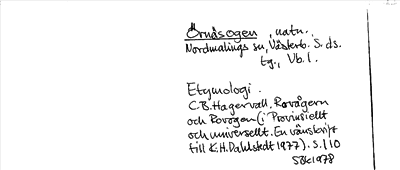 Örnåsogen, natn.
Nordmalings sn, Västerb. S. ds.
tg., Vb. l.
Etymologi.
C.B. Hagervall, Rovågern
och Rovogen (i Provinsiellt
och universellt. En vänskrift
till K.H. Dahlstedt 1977). S. 110
SBK 1978